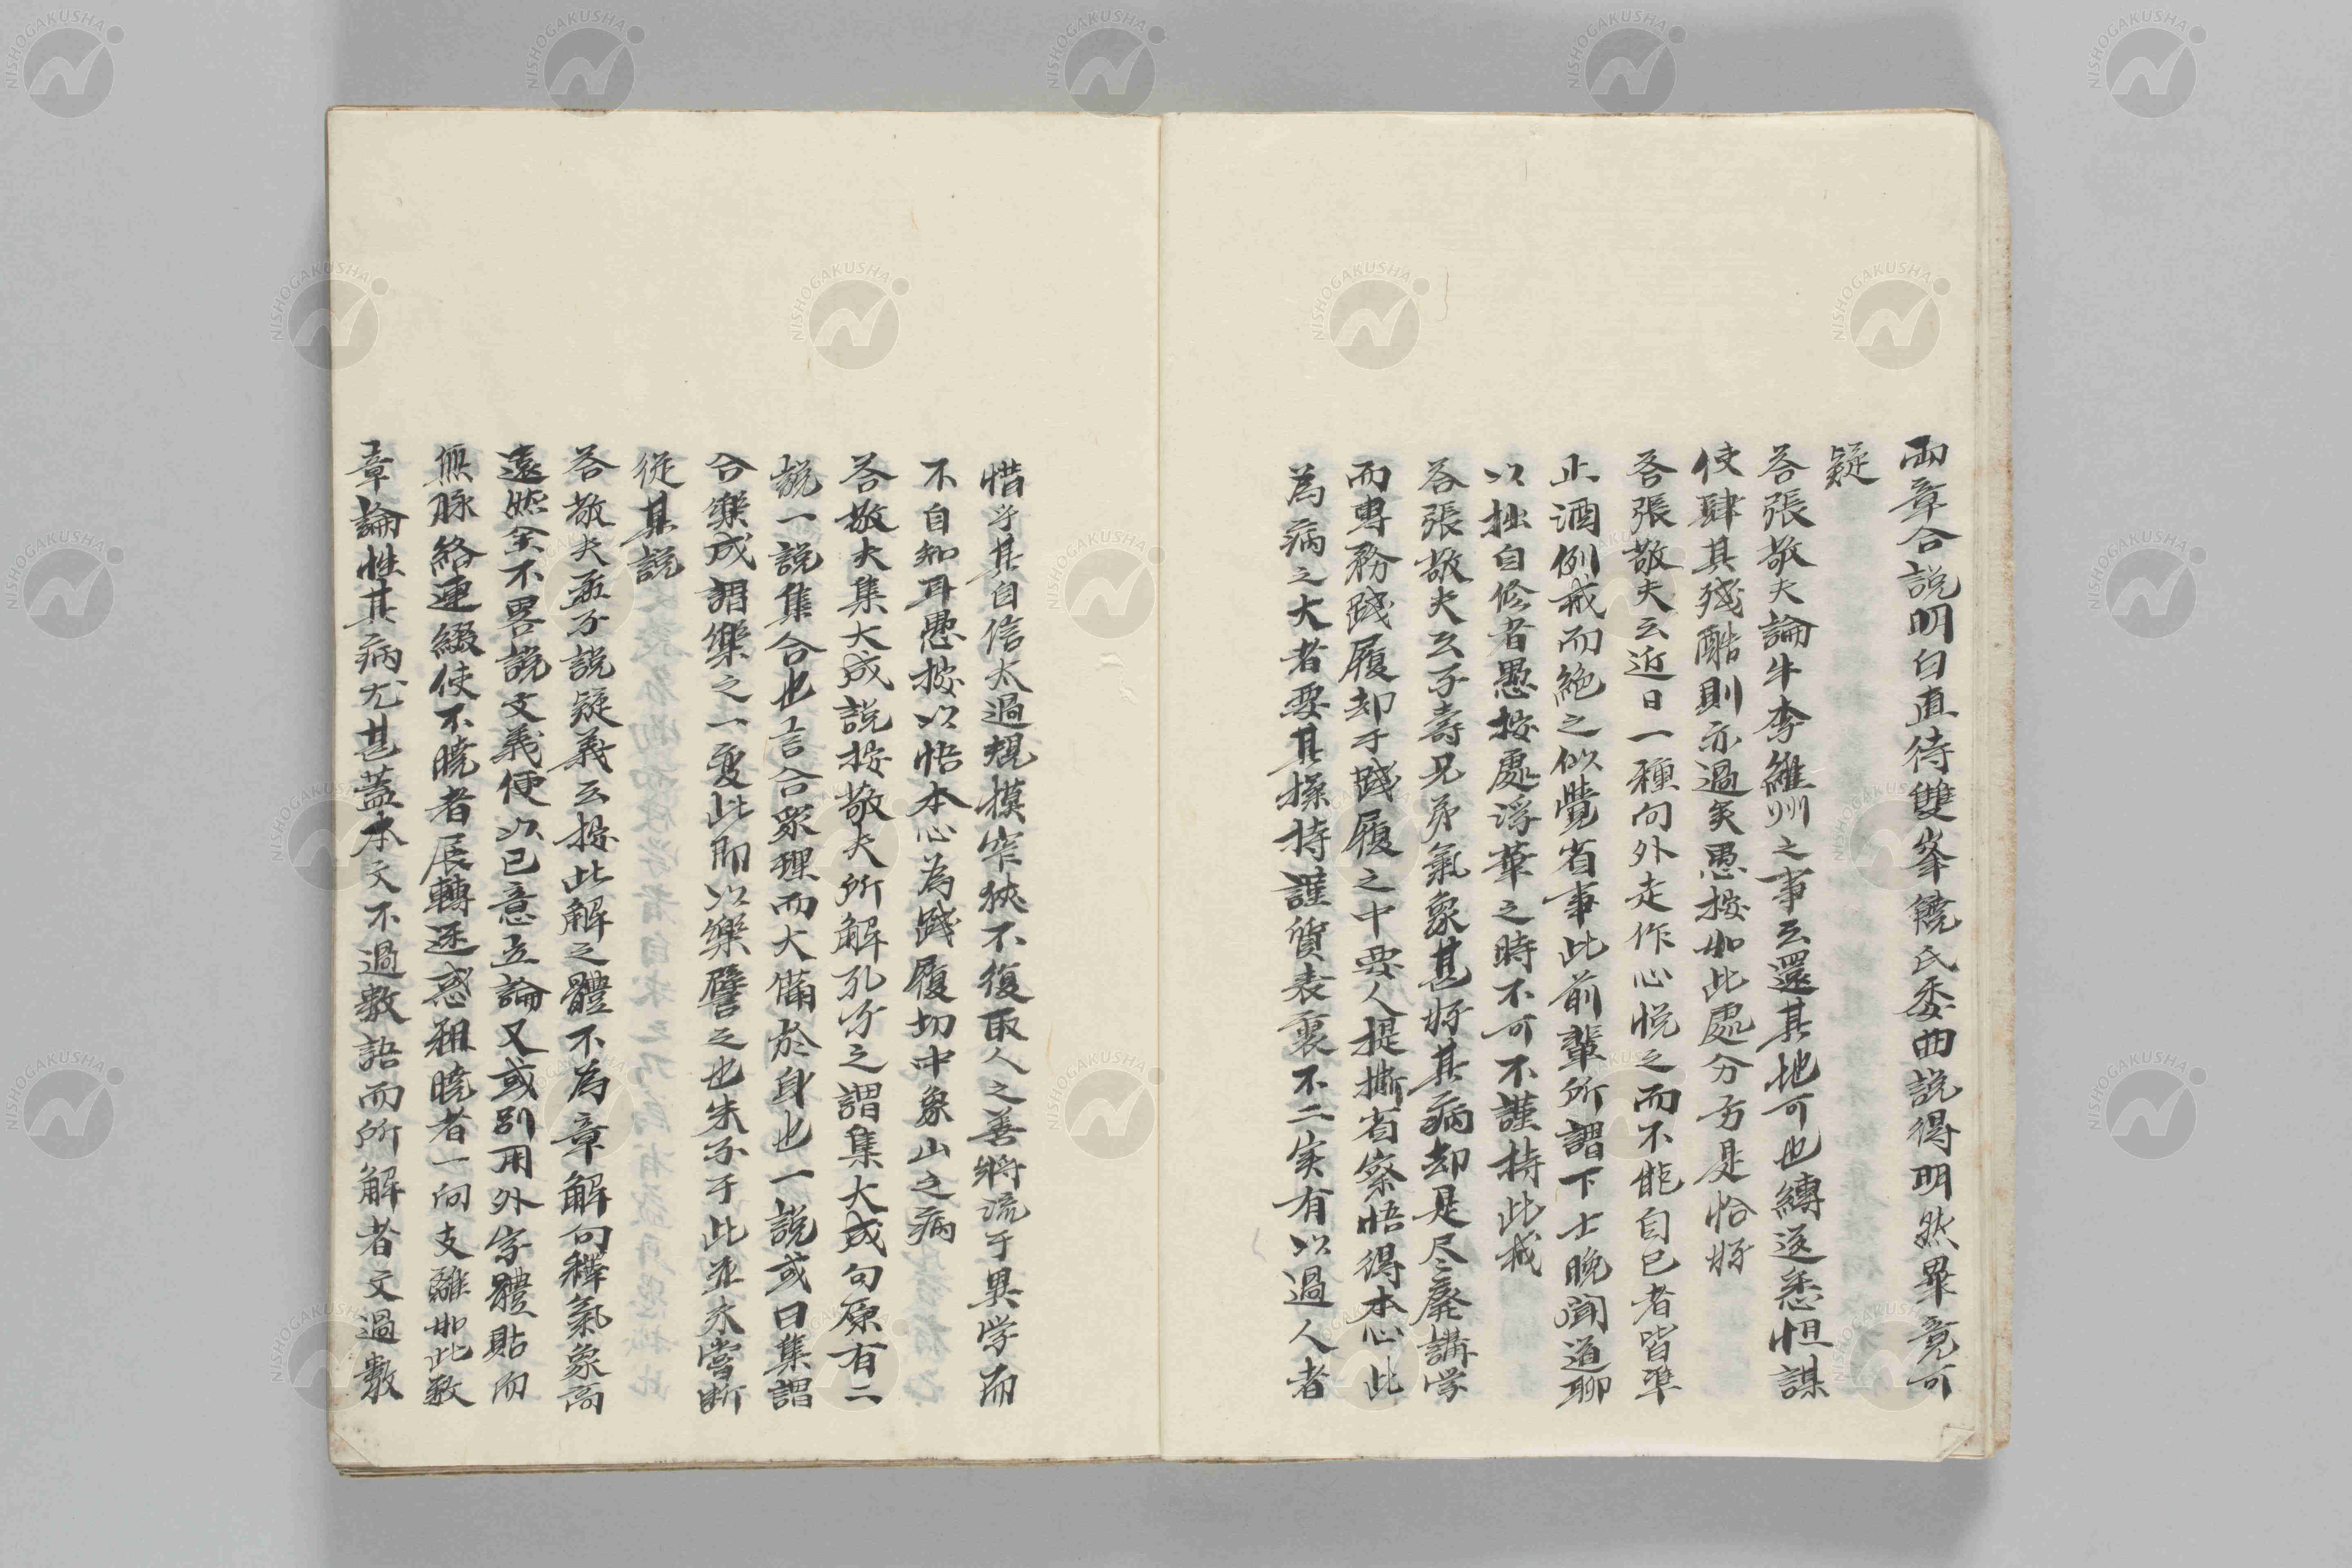 両章合説明白直待雙峯饒氏委曲説得明然畢竟可
疑
答張敬夫論牛李維州之事云還其地可也縛送悉怛謀
使肆其残酷則亦過矣愚按如此處分方是恰好
答張敬夫云近日一種向外走作心悦之而不能自已者皆準
止酒例戒而絶之似覺省事此前輩所謂下士晚聞道聊
以拙自修者愚按處浮華之時不可不謹持此戒
答張敬夫云子壽兄弟氣象甚好其病却是尽廢講学
而專務踐履却于踐履之中要人提撕省察悟得本心此
為病之大者要其操持謹質表裏不二実有以過人者
惜乎其自信太過規模窄狹不復取人之善將流于異学而
不自知耳愚按以悟本心為踐履切中象山之病
答敬夫集大成説按敬夫所解孔子之謂集大成句原有二
説一説集合也言合衆理而大備於身也一説或曰集謂
合樂成謂樂之一変此即以樂譬之也朱子于此並未嘗断
從其説
答敬夫孟子説疑義云按此解之體不為章解句釋氣象高
遠然全不畧説文義便以已意立論又或別用外字體貼而
無脉絡連綴使不曉者展轉迷惑粗曉者一向支離如此数
章論性其病尤甚蓋本文不過数語而所解者文過数